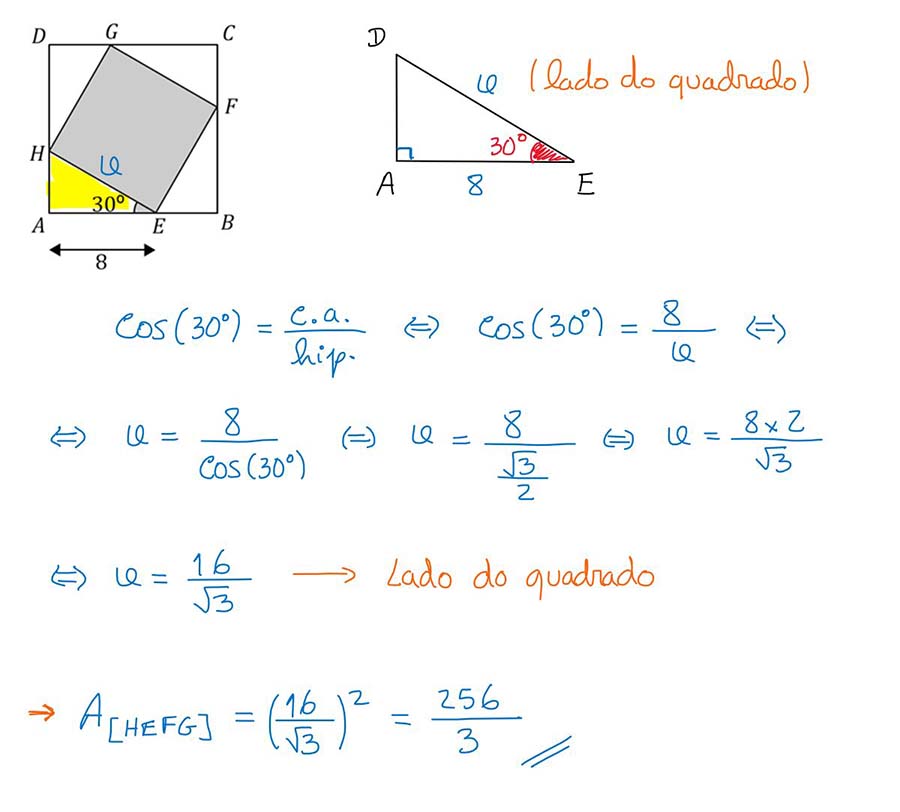 D G C
F
H l
30º
A E B
8
D
l (lado do quadrado)
30°
A 8 E
cos(30°) = c.a./hip. ⇔ cos(30°) = 8/l ⇔
⇔ l = 8/cos(30°) ⇔ l = 8/(√3/2) ⇔ l = 8×2/√3
⇔ l = 16/√3 → Lado do quadrado
→ A[HEFG] = (16/√3)² = 256/3 //